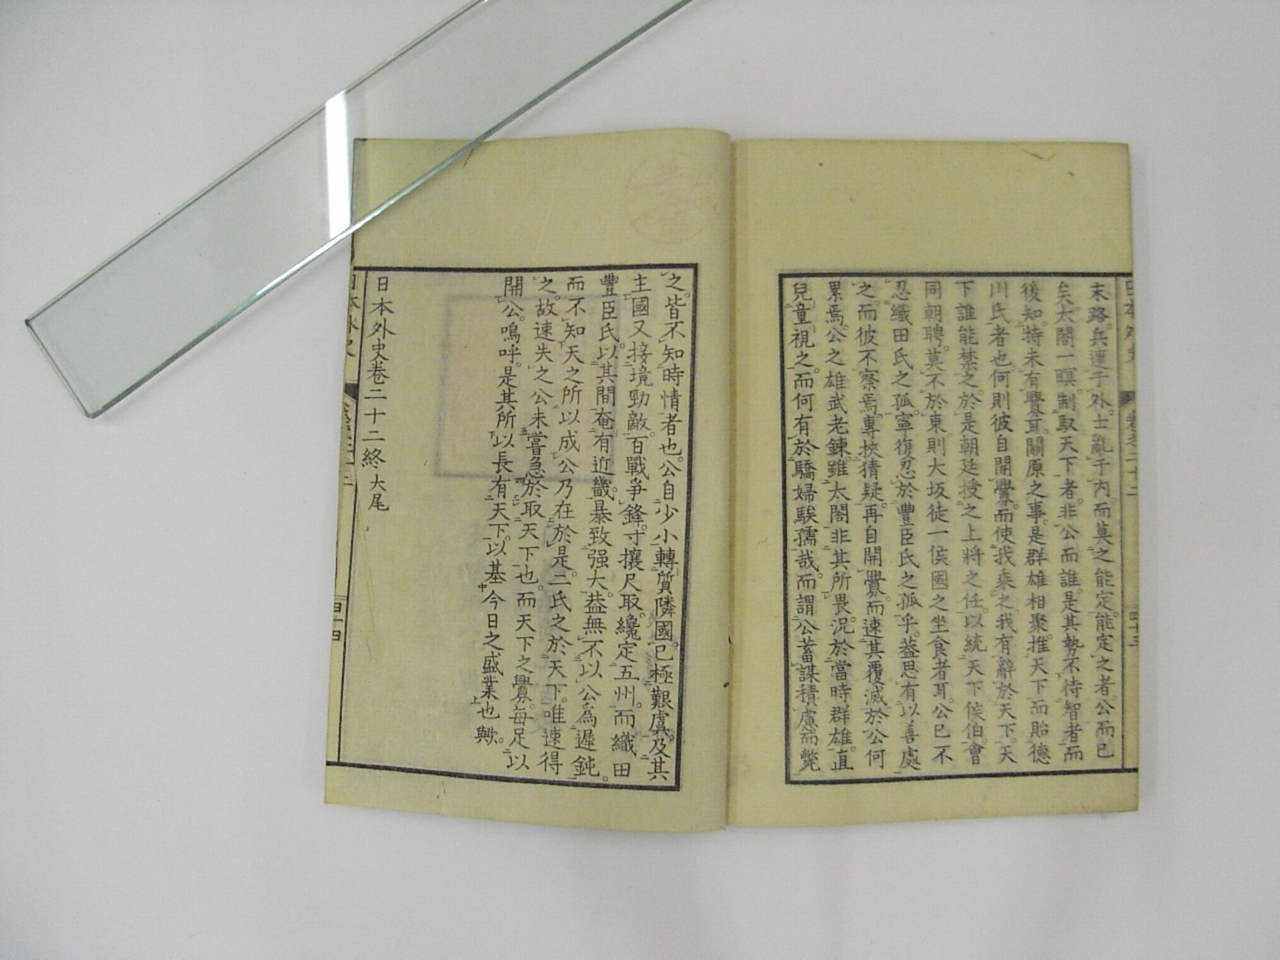 末路。兵連于外。士亂于內。而莫之能定。能定之者。公而已
矣。太閤一瞑。制馭天下者。非公而誰。是其勢不待智者而
後知。特未有釁耳。關原之事。是群雄相聚。推天下而貽德
川氏者也。何則彼自開釁。而使我乘之。我有辭於天下。天
下誰能禁之。於是朝廷授之上將之任。以統天下侯伯會
同朝聘。莫不於東。則大坂徒一侯國之坐食者耳。公已不
忍織田氏之孤。寧復忍於豐臣氏之孤乎。蓋思有以善處
之。而彼不察焉。專挾猜疑。再自開釁。而速其覆滅。於公何
累焉。公之雄武老鍊。雖太閤非其所畏。況於當時群雄。直
兒童視之。而何有於驕婦騃孺哉。而謂公蓄謀積慮而斃
之。皆不知時情者也。公自少小轉質隣國。已極艱虞。及其
主國又接境勁敵。百戰爭鋒。寸攘尺取。纔定五州。而織田
豐臣氏。以其間奄有近畿。暴致强大。蓋無不以公為遲鈍。
而不知天之所以成公乃在於是。二氏之於天下。唯速得
之。故速失之。公未嘗急於取天下也。而天下之釁每足以
開公。嗚呼。是其所以長有天下。以基今日之盛業也歟。
日本外史卷二十二終 大尾
日本外史
四十四